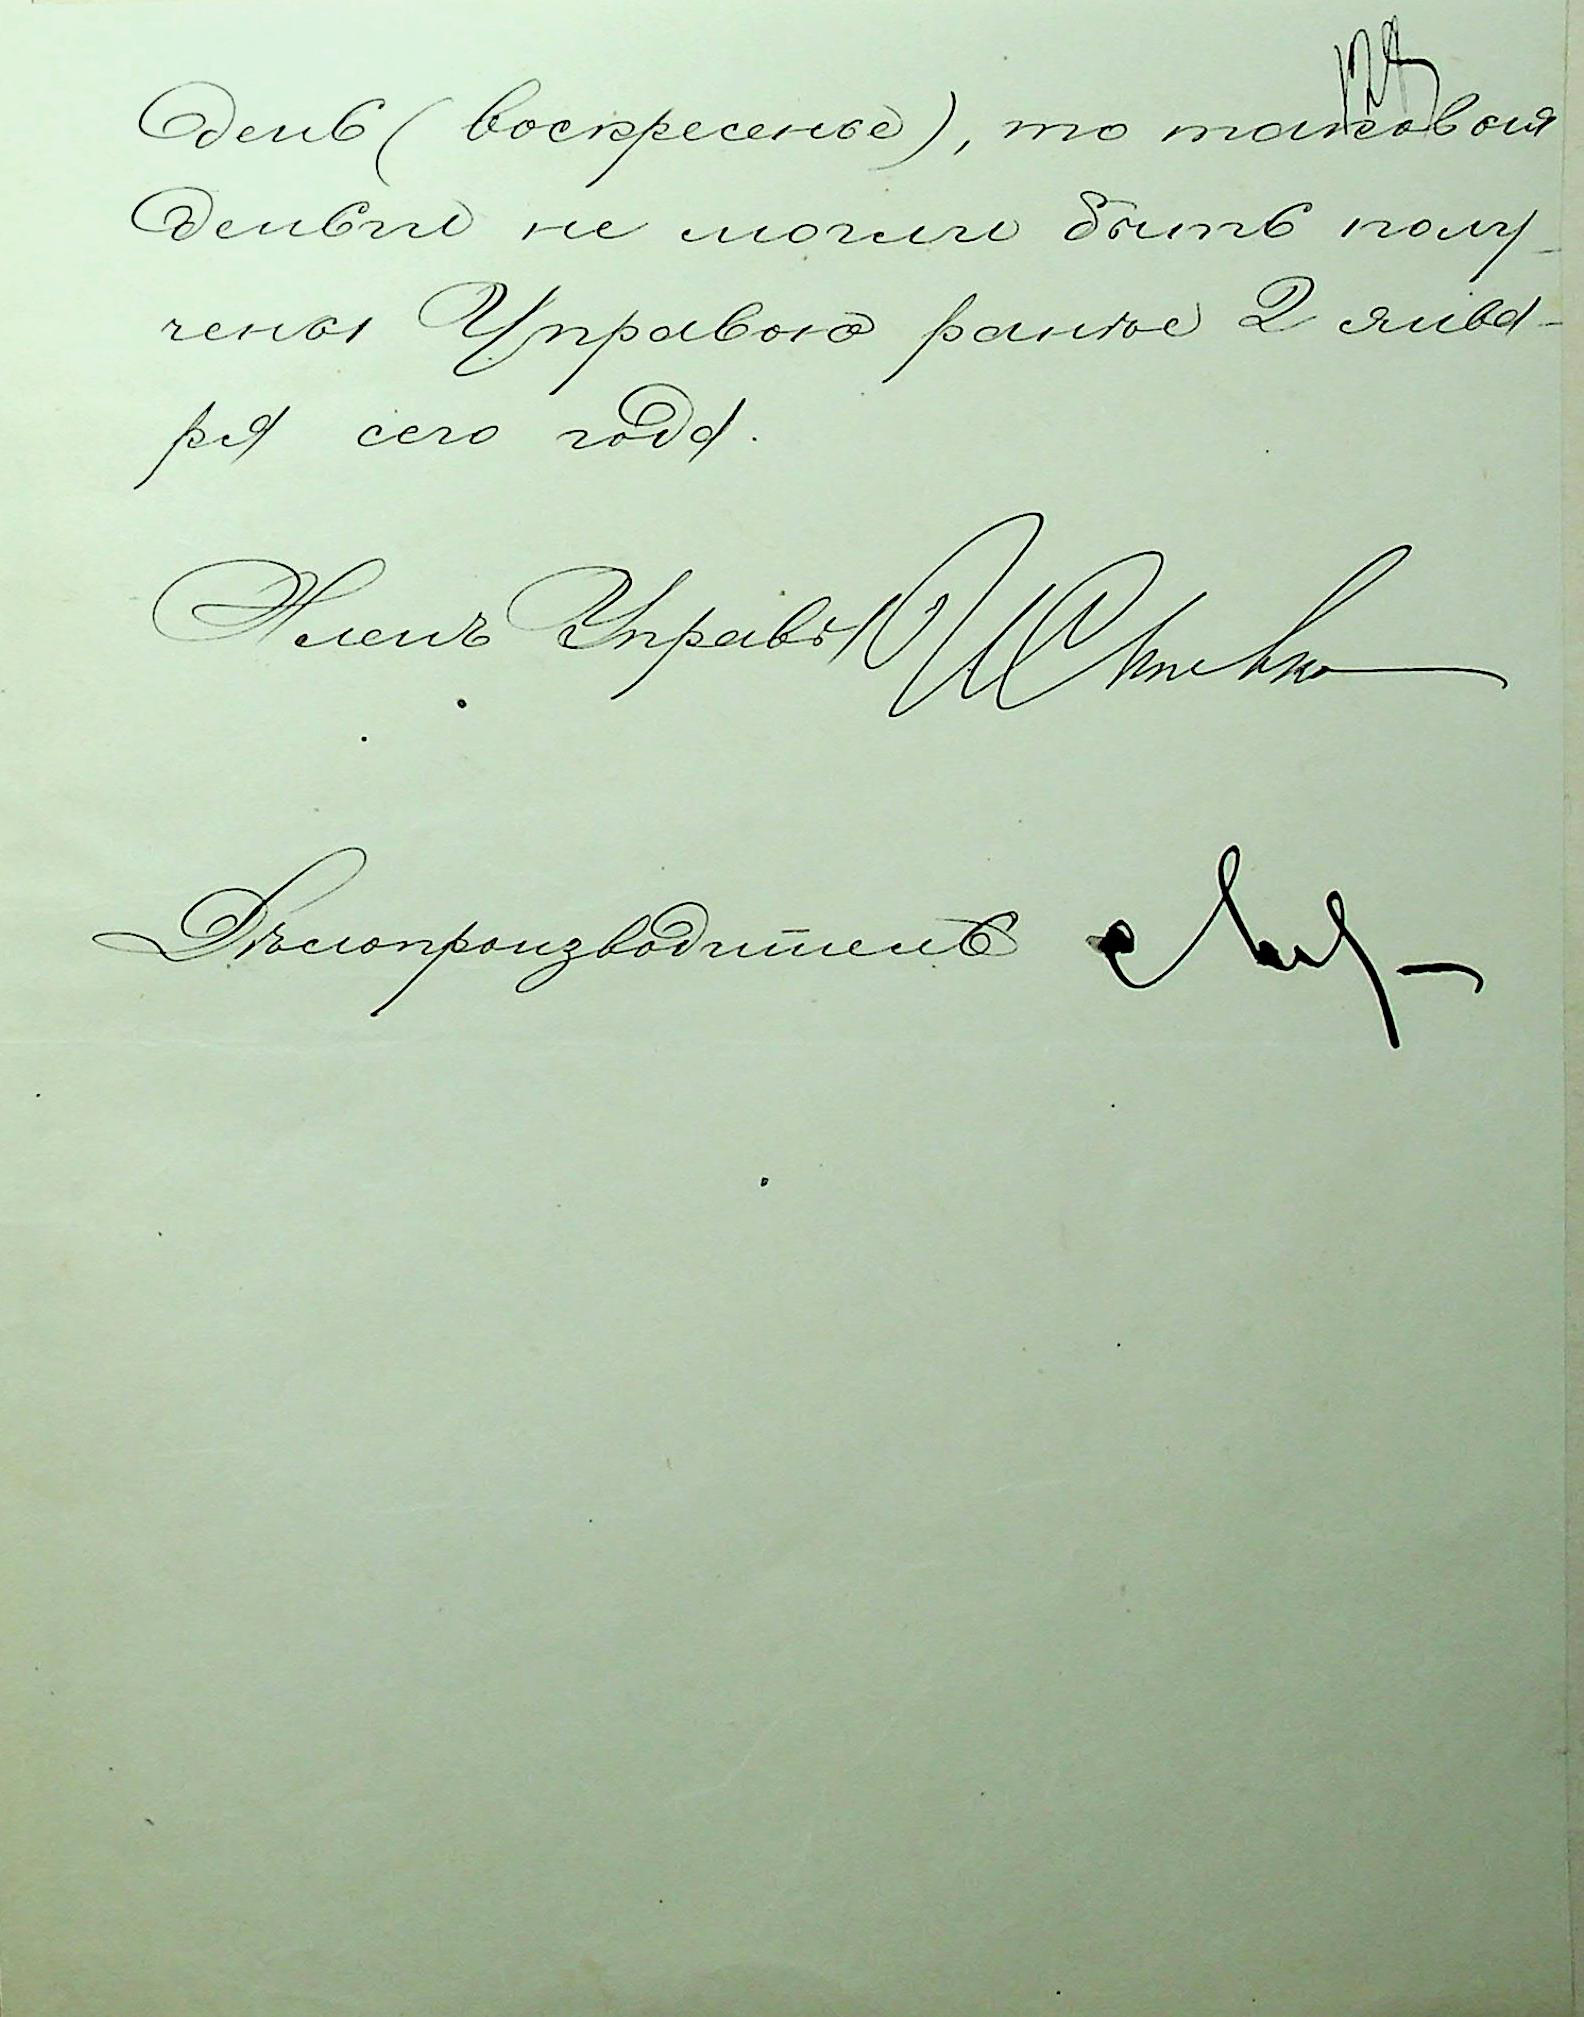 день (воскресенье), то таковыя
деньги не могли быть полу-
чены Управою ранѣе 2 янва-
ря сего года.
Членъ Управы
Дѣлопроизводитель